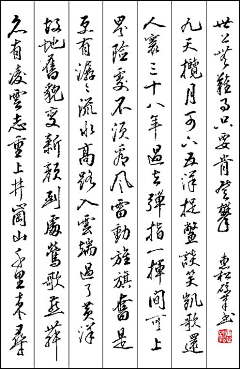 久有凌雲志重上井岡山千里來尋
故地舊貌變新顏到處鶯歌燕舞
更有潺々流水高路入雲端過了黃洋
界險處不須看風雷動旌旗奮是
人寰三十八年過去彈指一揮間可上
九天攬月可下五洋捉鱉談笑凱歌還
世上無難事只要肯登攀